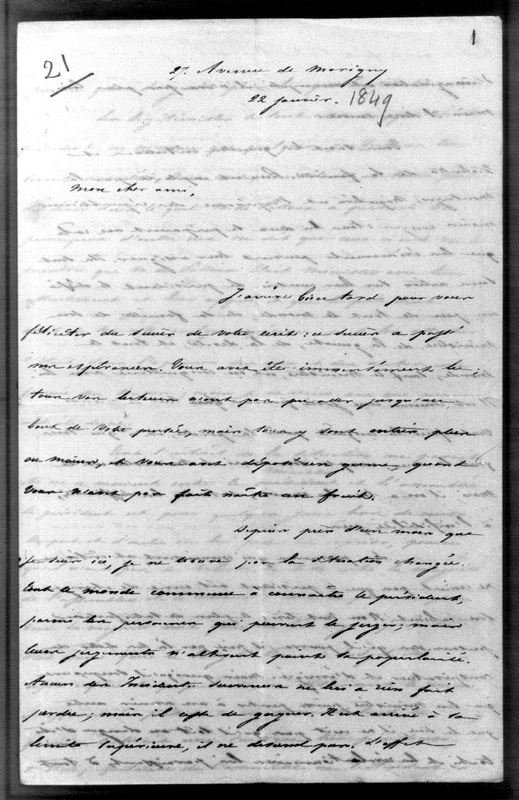 21
1
27 Avenue de Marigny
22 janvier. 1849
Mon cher ami,
J'arrive bien tard pour vous
féliciter du succès de votre écrit; ce succès a passé
mes espérances. Vous avez été immensément lu,
tous vos lecteurs n'ont pas pu aller jusqu'au
bout de votre pensée, mais tous y sont entrés plus
ou moins, et vous avez déposé un germe, quand
vous n'avez pas fait naître un fruit.
Depuis près d'un mois que
je suis ici, je ne trouve pas la situation changée.
Tout le monde commence à connaître le président,
parmi les personnes qui peuvent le juger; mais
leurs jugements n'altèrent point la popularité.
Aucun des incidents survenus ne lui a rien fait
perdre; mais il cesse de gagner. Il est arrivé à sa
limite supérieure, il ne descend pas. L'effet